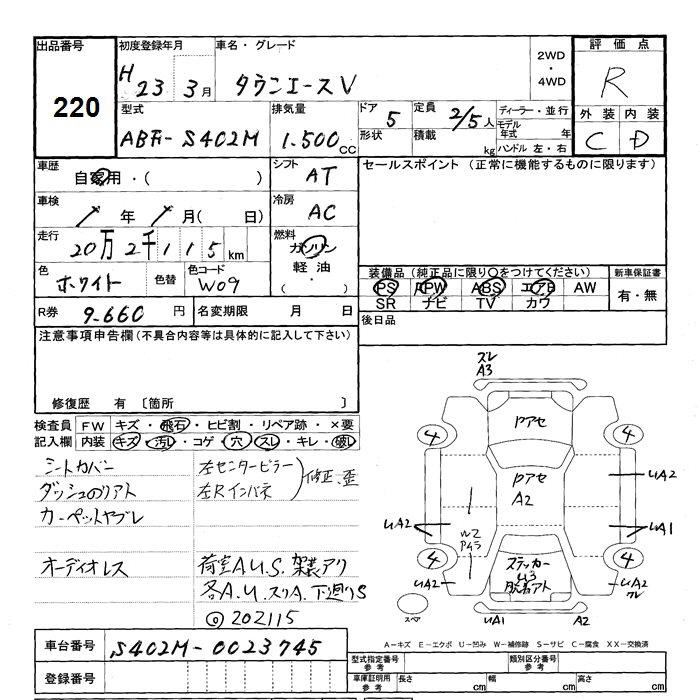 出品番号
220
初度登録年月
H 23 3月
車名・グレード
タウンエースV
2WD
・
4WD
評価点
R
外装 内装
C D
型式
ABF-S402M
排気量
1.500cc
ドア 5
形状
定員 2/5人
積載 kg
ディーラー・並行
モデル年式 年
ハンドル 左・右
車歴
自家用・( )
シフト
AT
セールスポイント (正常に機能するものに限ります)
車検
/ 年 / 月( 日)
冷房
AC
走行
20万2千115km
燃料
ガソリン
軽油・
( )
色
ホワイト
色替
色コード
W09
装備品(純正品に限り○をつけてください)
PS PW ABS エアB AW
SR ナビ TV カワ
新車保証書
有・無
R券 9.660円
名変期限 月 日
後日品
注意事項申告欄(不具合内容等は具体的に記入して下さい)
修復歴 有 〔箇所 〕
検査員記入欄
FW キズ・飛石・ヒビ割・リペア跡・×要
内装 キズ・汚レ・コゲ・穴・スレ・キレ・破レ
シートカバー
ダッシュのリアト
カーペットヤブレ
オーディオレス
左センターピラー
左Rインパネ
修正、歪
荷室AU.S.架装アク
各A.U.スリA.下廻りS
◎202115
ズレ
A3
Pアセ
4
4
Pアセ
A2
UA2
UA2
UA1
W2
4
4
ステッカー
U3
脱着アト
UA2
UA2
スペア
UA1
A2
A-キズ E-エクボ U-凹み W-補修跡 S-サビ C-腐食 XX-交換済
車台番号 S402M-0023745
登録番号
型式指定番号
参考
類別区分番号
参考
車庫証明用
参考
長さ cm
幅 cm
高さ cm